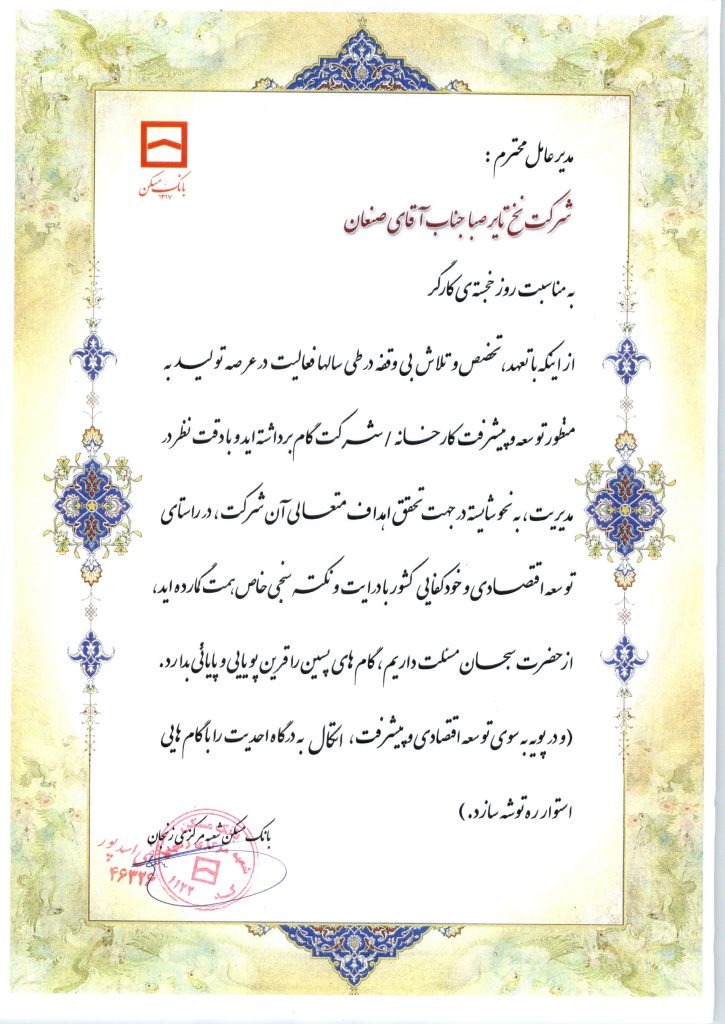 بانک مسکن
۱۳۱۷
مدیر عامل محترم :
شرکت نخ تایر صبا جناب آقای صنعان
به مناسبت روز خجسته ی کارگر
از اینکه با تعهد، تخصص و تلاش بی وقفه در طی سالها فعالیت در عرصه تولید به
منظور توسعه و پیشرفت کارخانه / شرکت گام برداشته اید و با دقت نظر در
مدیریت، به نحو شایسته در جهت تحقق اهداف متعالی آن شرکت، در راستای
توسعه اقتصادی و خودکفایی کشور با درایت و نکته سنجی خاص همت گمارده اید،
از حضرت سبحان مسئلت داریم، گام های پسین را قرین پویایی و پایائی بدارد.
(و در پویه به سوی توسعه اقتصادی و پیشرفت، اتکال به درگاه احدیت را با گام هایی
استوار ره توشه سازد.)
بانک مسکن شعبه مرکزی زنجان
اسدپور
۴۶۳۲۶
بانک مسکن
شعبه
کد ۱۱۲۲